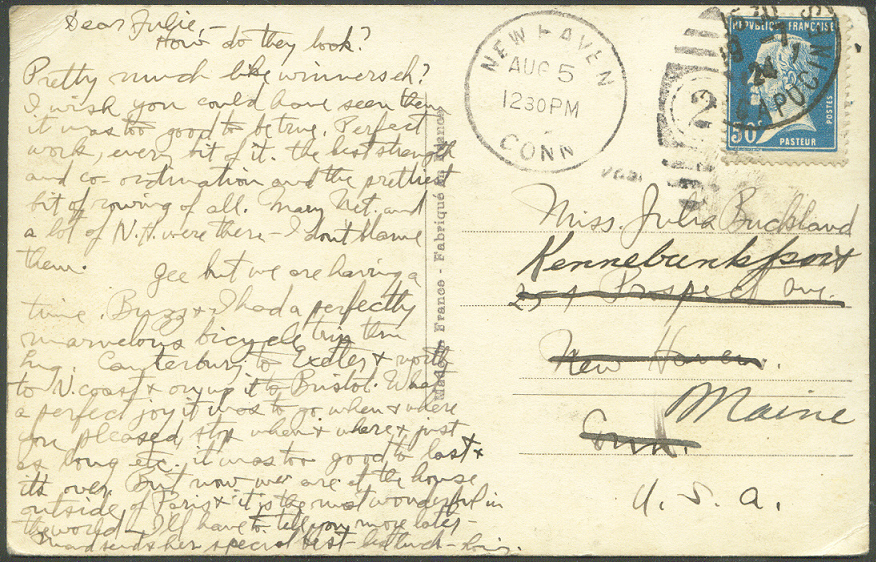 Dear Julie -
How do they look?
Pretty much like winners eh?
I wish you could have seen them
it was too good to be true. Perfect
work, every bit of it. the best strength
and co-ordination and the prettiest
bit of rowing of all. Mary Net. and
a lot of N.H. were there - I don't blame
them.
Gee but we are having a
time. Buzz & I had a perfectly
marvelous bicycle trip thru
Eng. Canterbury to Exeter & north
to N. coast & on up it to Bristol. What
a perfect joy it was to go when & where
you pleased, stop when & where & just
as long etc. it was too good to last &
it's over. But now we are at the house
outside of Paris & it is the most wonderful in
the world - I'll have to tell you more later -
sends her special best - best luck -
Made in France - Fabriqué en France
NEW HAVEN
AUG 5
1230 PM
CONN
2
1530
24
CAPUCINES
REPUBLIQUE FRANÇAISE
POSTES
50c
PASTEUR
Miss. Julia Buckland
Kennebunkport
254 Prospect Ave.
New Haven.
Maine
Conn.
U. S. A.